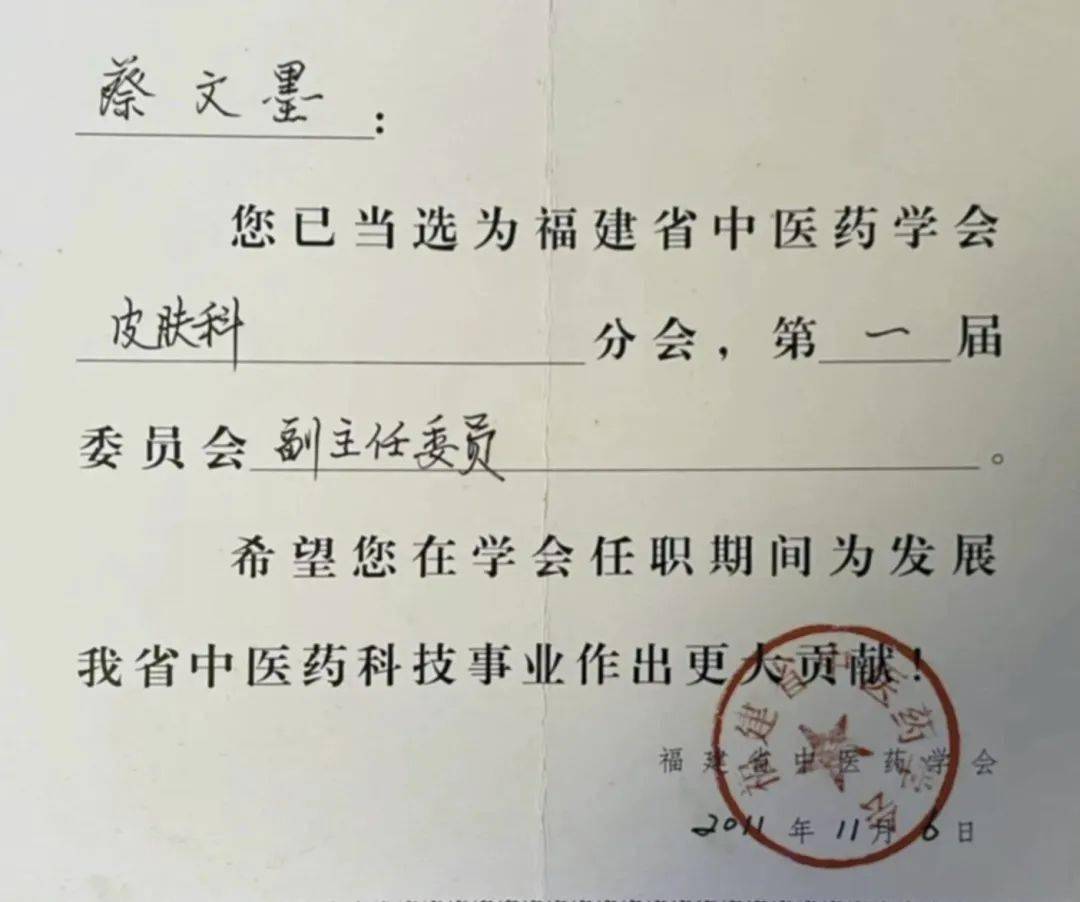 蔡文墨：
您已当选为福建省中医药学会
皮肤科分会，第一届
委员会副主任委员。
希望您在学会任职期间为发展
我省中医药科技事业作出更大贡献！
福建省中医药学会
福建省中医药学会
2011年11月6日